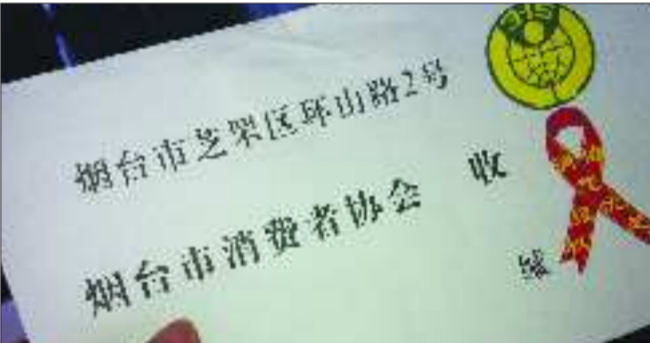 烟台市芝罘区环山路2号
烟台市消费者协会 收
缄